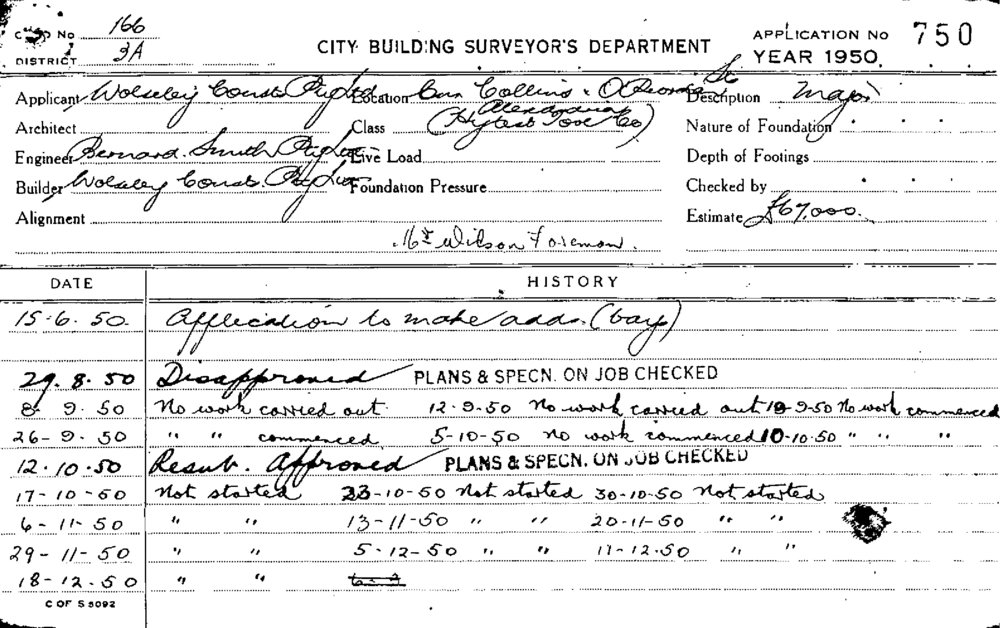 CARD No 166
DISTRICT 3A
CITY BUILDING SURVEYOR'S DEPARTMENT
APPLICATION No 750
YEAR 1950
Applicant Wolseley Const. Pty Ltd Location Cnr Collins & O'Riordan St Description Major
Architect Class Alexandria Nature of Foundation
(Hytest Co)
Engineer Bernard Smith Pty Ltd Live Load Depth of Footings
Builder Wolseley Const. Pty Ltd Foundation Pressure Checked by
Alignment Estimate £67,000.
Mr Wilson Foreman.
DATE HISTORY
15-6-50. Application to make adds. (bay)
29.8.50 Disapproved PLANS & SPECN. ON JOB CHECKED
8-9.50 No work carried out. 12-9-50 No work carried out 18-9-50 No work commenced
26-9.50 " " commenced 5-10-50 no work commenced 10-10-50 " " "
12.10.50 Resub. Approved PLANS & SPECN. ON JOB CHECKED
17-10-50 Not started 23-10-50 Not started 30-10-50 Not started
6-11-50 " " 13-11-50 " " 20-11-50 " "
29-11-50 " " 5-12-50 " " 11-12-50 " "
18-12-50 " "
C OF S 5092